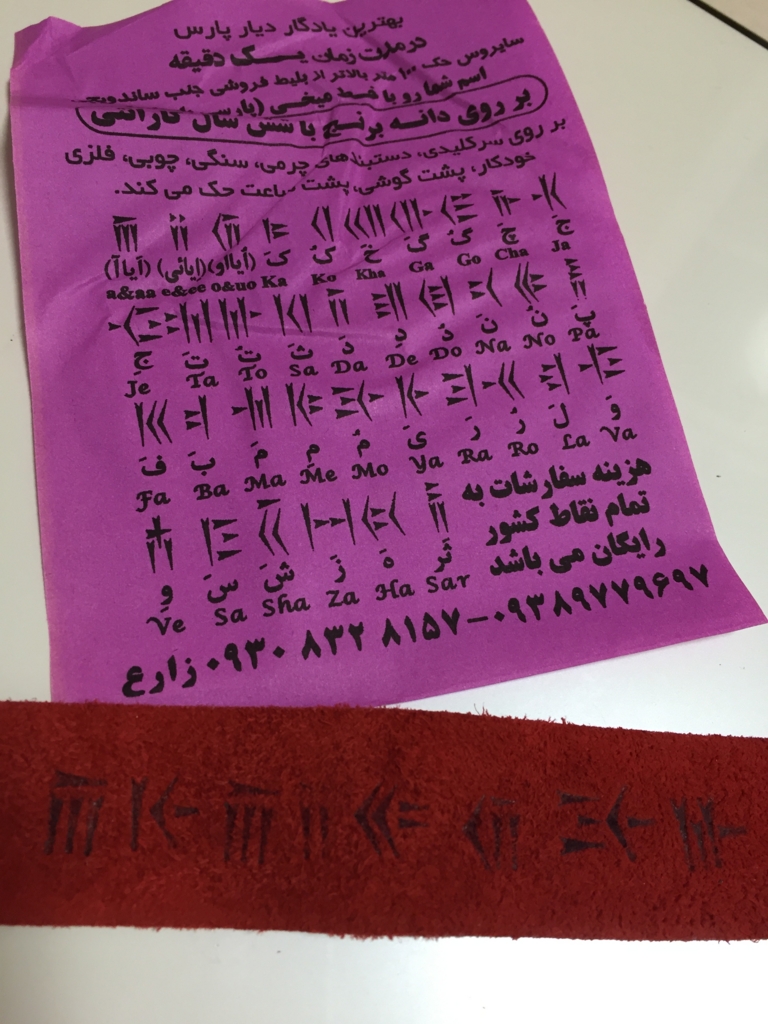 بهترین یادگار دیار پارس
در مدت زمان یک دقیقه
سایروس حک ۱۰ متر بالاتر از بلیط فروشی جنب ساندویچ
اسم شما رو با خط میخی (پارسی)
بر روی دانه برنج با شش سال گارانتی
بر روی سرکلیدی، دستبندهای چرمی، سنگی، چوبی، فلزی
خودکار، پشت گوشی، پشت ساعت حک می کند.
𐎠 𐎡 𐎢 𐎣 𐎤 𐎧 𐎥 𐎦 𐎨 𐎩
(اَیاآ) (اِیاتی) (اُیااو) کَ کُ خَ گَ گُ چَ جَ
a&aa e&ee o&uo Ka Ko Kha Ga Go Cha Ja
𐎪 𐎫 𐎬 𐎰 𐎭 𐎮 𐎯 𐎴 𐎵 𐎱
جِ تَ تُ ثَ دَ دِ دُ نَ نُ پَ
Je Ta To Sa Da De Do Na No Pa
𐎳 𐎲 𐎶 𐎷 𐎸 𐎹 𐎼 𐎽 𐎾 𐎺
فَ بَ مَ مِ مُ یَ رَ رُ لَ وَ
Fa Ba Ma Me Mo Ya Ra Ro La Va
𐎻 𐎿 𐏁 𐏀 𐏃 𐏂
وِ سَ شَ زَ هَ ثرَ
Ve Sa Sha Za Ha Sar
هزینه سفارشات به
تمام نقاط کشور
رایگان می باشد
۰۹۳۸۹۷۷۹۶۹۷-۰۹۳۰ ۸۳۲ ۸۱۵۷ زارع